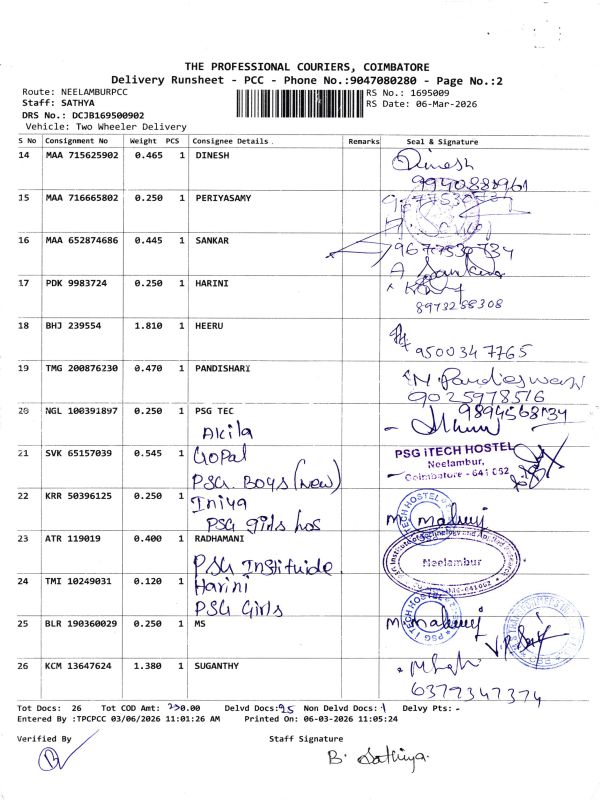 THE PROFESSIONAL COURIERS, COIMBATORE
Delivery Runsheet - PCC - Phone No.:9047080280 - Page No.:2
Route: NEELAMBURPCC
RS No.: 1695009
Staff: SATHYA
RS Date: 06-Mar-2026
DRS No.: DCJB169500902
Vehicle: Two Wheeler Delivery
S No Consignment No Weight PCS Consignee Details Remarks Seal & Signature
14 MAA 715625902 0.465 1 DINESH Dinesh
9940888961
15 MAA 716665802 0.250 1 PERIYASAMY
16 MAA 652874686 0.445 1 SANKAR 9677530734
A Sankar
17 PDK 9983724 0.250 1 HARINI
8973258308
18 BHJ 239554 1.810 1 HEERU
9500347765
19 TMG 200876230 0.470 1 PANDISHARI
9025978516
20 NGL 100391897 0.250 1 PSG TEC 9894568734
Akila
21 SVK 65157039 0.545 1 Gopal PSG iTECH HOSTEL
Neelambur,
Coimbatore - 641 062
PSG. Boys (New)
22 KRR 50396125 0.250 1 Iniya
PSG girls hos
23 ATR 119019 0.400 1 RADHAMANI
PSG Instituide Neelambur
24 TMI 10249031 0.120 1 Harini
PSG Girls
25 BLR 190360029 0.250 1 MS
26 KCM 13647624 1.380 1 SUGANTHY
6377347374
Tot Docs: 26 Tot COD Amt: 230.00 Delvd Docs: 25 Non Delvd Docs: 1 Delvy Pts: -
Entered By :TPCPCC 03/06/2026 11:01:26 AM Printed On: 06-03-2026 11:05:24
Verified By Staff Signature
B. Sathiya.